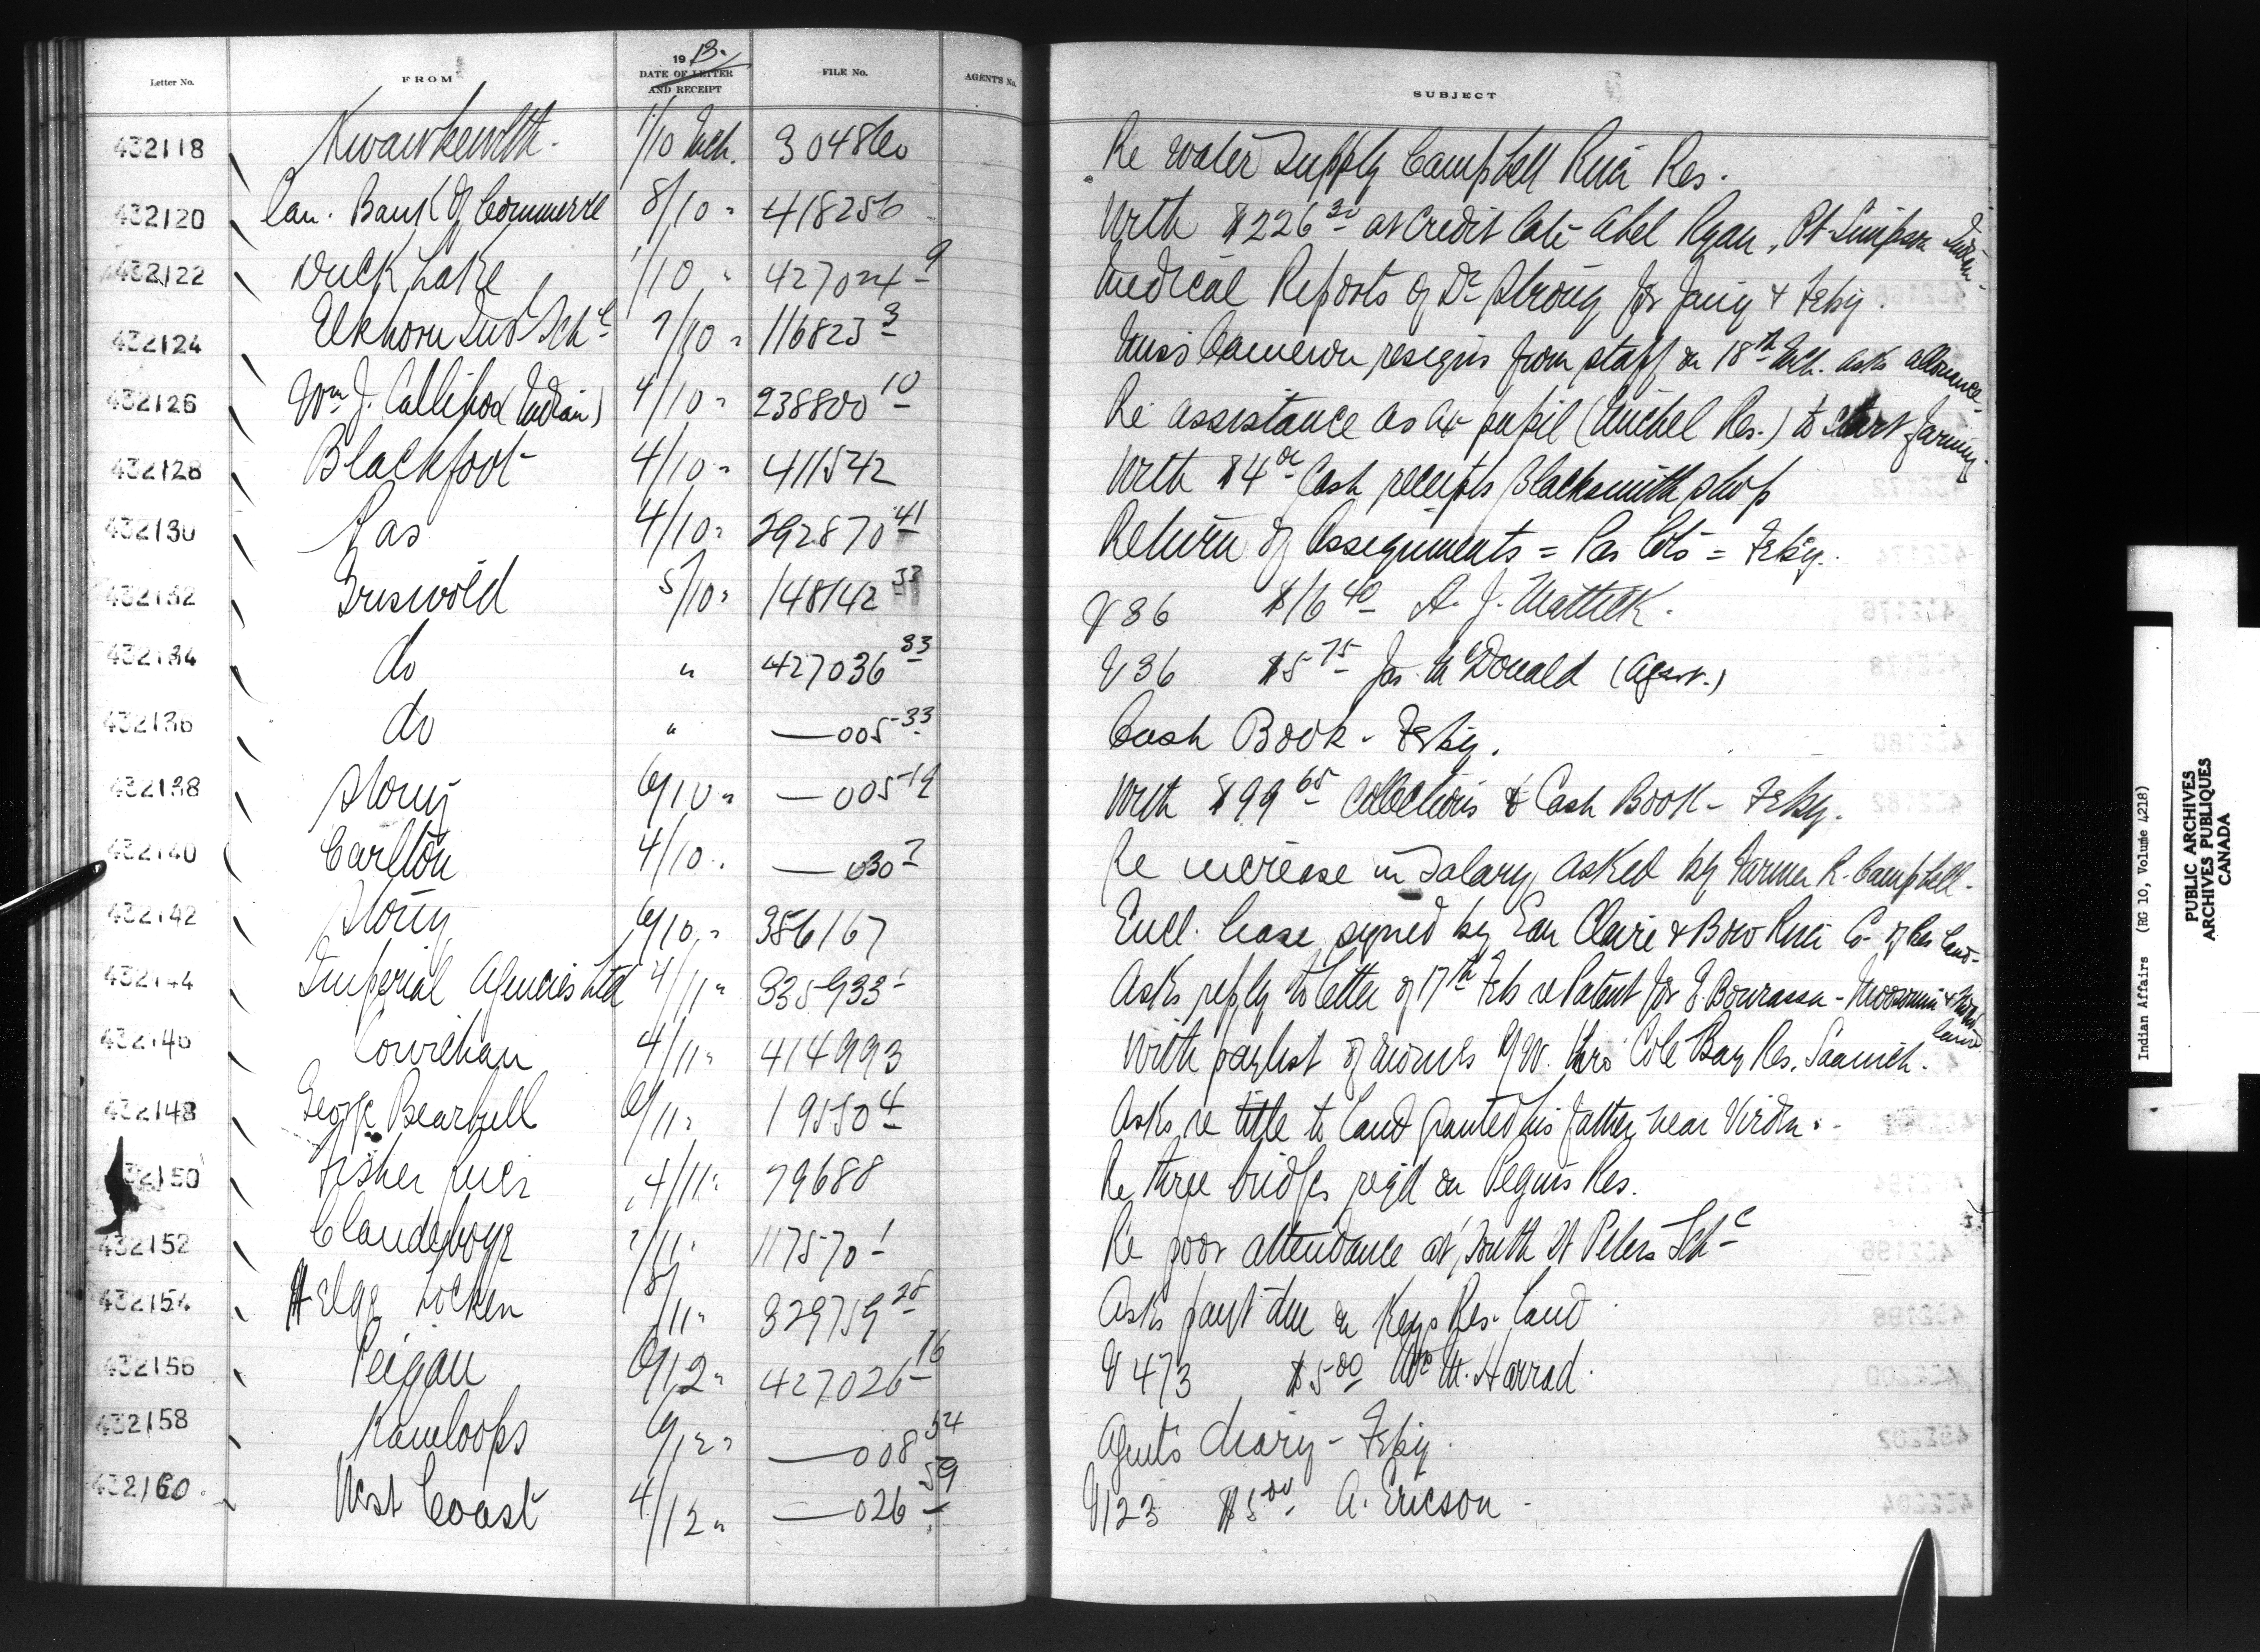 Letter No. FROM 1913. DATE OF LETTER AND RECEIPT FILE No. AGENT'S No. SUBJECT
432118 Kwawkewlth. 1/10 Mch. 304860 Re water supply Campbell River Res.
432120 Can. Bank of Commerce 8/10 " 418256 With $226 30 at credit late Abel Ryan, Pt Simpson Indian.
432122 Duck Lake 1/10 " 427024 9 Medical Reports of Dr Strong for Jany & Feby.
432124 Elkhorn Ind Schl 7/10 " 116823 3 Miss Cameron resigns from staff on 18th Mch. asks allowance
432126 Wm J. Callihoo (Indian) 4/10 " 238800 10 Re assistance as ex pupil (Michel Res.) to start farming
432128 Blackfoot 4/10 " 411542 With $4 00 Cash receipts Blacksmith shop
432130 Pas 4/10 " 292870 41 Return of Assignments = Pas Lots = Feby.
432132 Griswold 5/10 " 148142 33 V 36 $16 40 A. J.
432134 do " 427036 33 V 36 $5 75 Jas. McDonald (Agent.)
432136 do " — 005 33 Cash Book - Feby.
432138 Stony 6/10 " — 005 19 With $99 65 Collections & Cash Book - Feby.
432140 Carlton 4/10 " — 030 7 Re increase in salary asked by Farmer R. Campbell.
432142 Stony 6/10 " 356167 Encl. lease signed by Eau Claire & Bow River Co. of Res land.
432144 Imperial Agencies Ltd 4/11 " 335933 1 Asks reply to letter of 17th Feb re Patent for E. Bourassa - Moosomin &
land
432146 Cowichan 4/11 " 414993 With paylist of moneys thro' Cole Bay Res. Saanich.
432148 George Bearbull 6/11 " 19550 4 Asks re title to land granted his father near Virden.
432150 Fisher River 4/11 " 79688 Re three bridges req'd on Peguis Res.
432152 Clandeboye 7/11 " 117570 1 Re poor attendance at South St Peters Schl
432154 Helge Locken 8/11 " 329759 28 Asks paymt due on Keys Res. land
432156 Peigan 6/12 " 427026 16 V 473 $5 00 Wm M. Harrad.
432158 Kamloops 6/12 " — 008 54 Agent's diary - Feby.
432160 West Coast 4/12 " — 026 59 V123 $5 00 A. Ericson
Indian Affairs (RG 10, Volume 4218)
PUBLIC ARCHIVES
ARCHIVES PUBLIQUES
CANADA